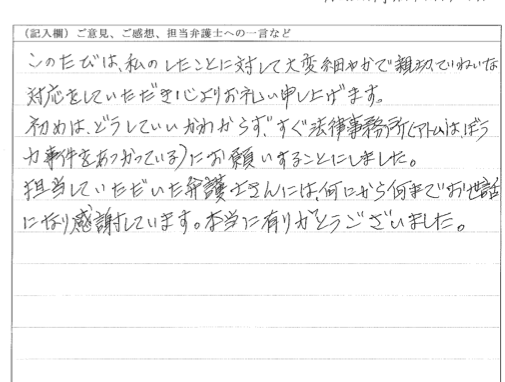 （記入欄）ご意見、ご感想、担当弁護士への一言など
このたびは、私のしたことに対して大変細やかで親切、ていねいな
対応をしていただき心よりお礼い申し上げます。
初めは、どうしていいかわからず、すぐ法律事務所（アトム）は、ぼう
力事件をあつかっている）にお願いすることにしました。
担当していただいた弁護士さんには、何にから何までお世話
になり感謝しています。本当に有りがとうございました。